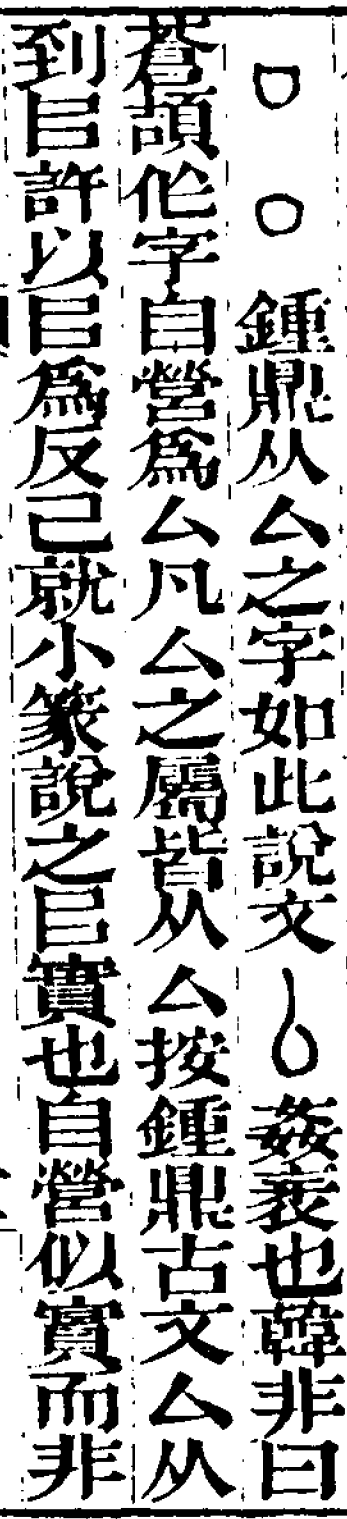 鍾鼎从厶之字如此說文姦衺也韓非曰
蒼頡作字自營爲厶凡厶之屬皆从厶按鍾鼎古文厶从
到㠯許以㠯爲反己就小篆說之㠯實也自營似實而非